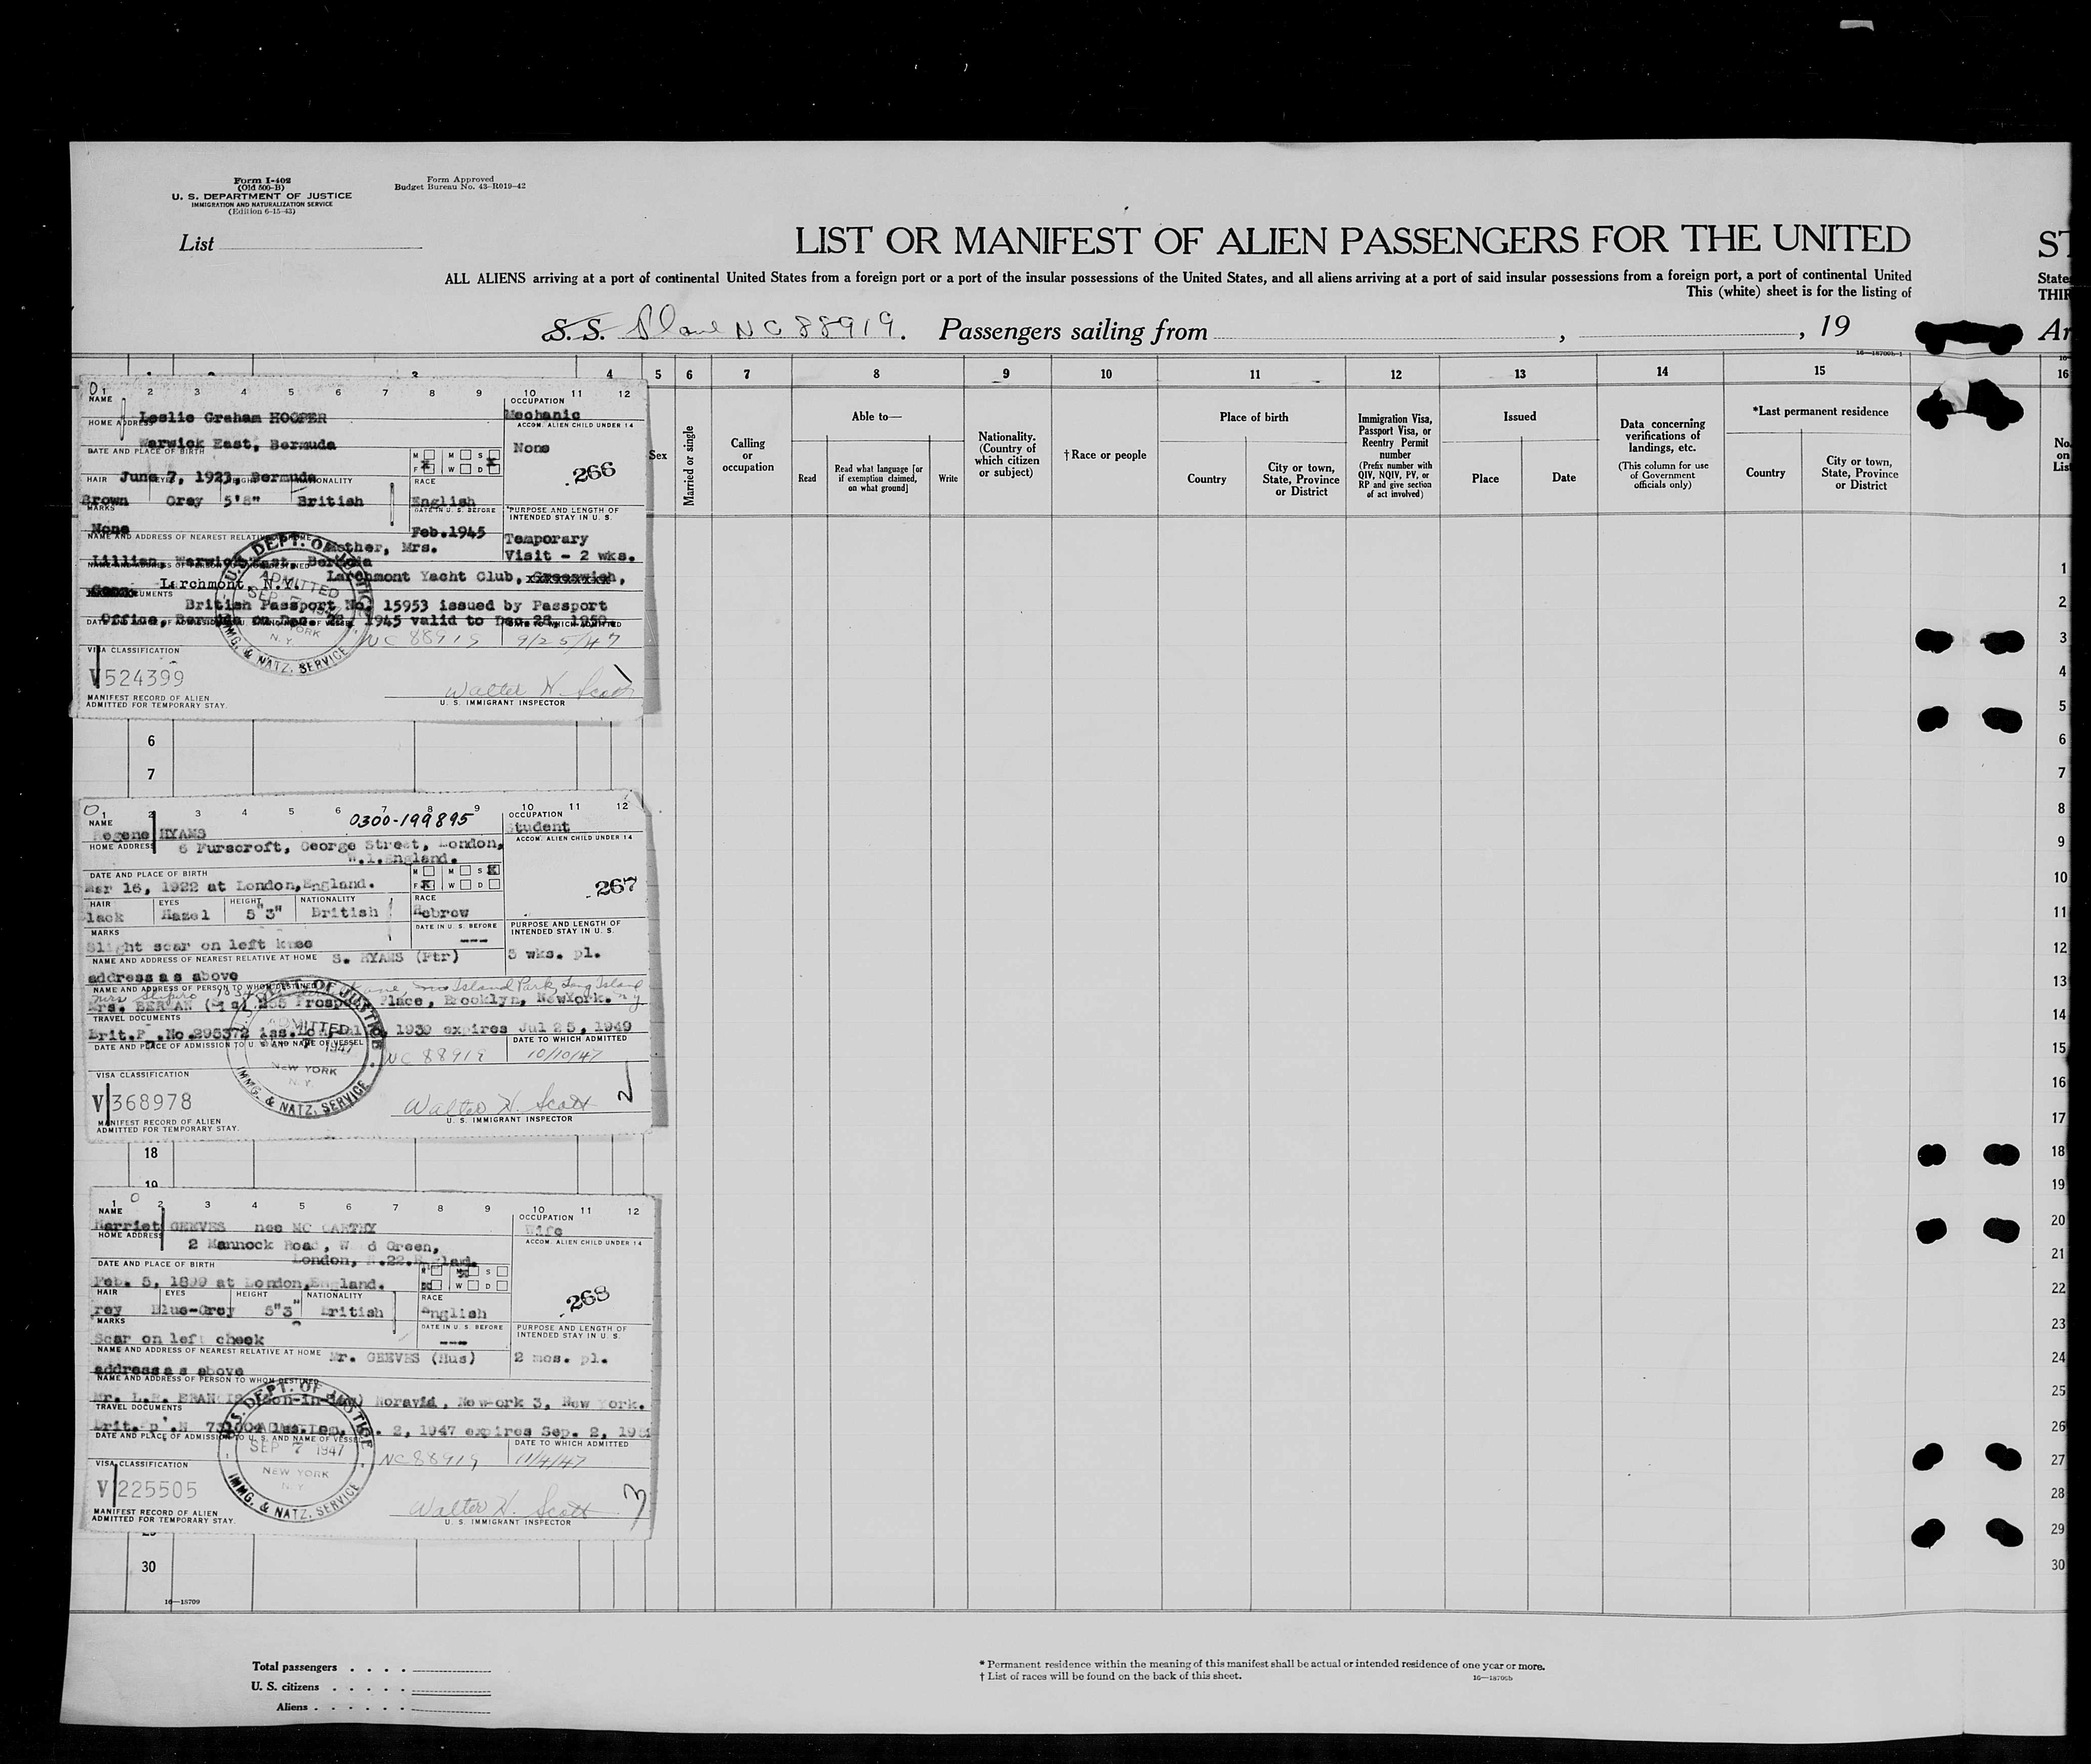 Form I-402
(Old 500-B)
U. S. DEPARTMENT OF JUSTICE
IMMIGRATION AND NATURALIZATION SERVICE
(Edition 6-15-43)
Form Approved
Budget Bureau No. 43-R019-42
List
LIST OR MANIFEST OF ALIEN PASSENGERS FOR THE UNITED
ST
ALL ALIENS arriving at a port of continental United States from a foreign port or a port of the insular possessions of the United States, and all aliens arriving at a port of said insular possessions from a foreign port, a port of continental United
State
This (white) sheet is for the listing of
THIR
S.S. Plane NC 88919. Passengers sailing from , , 19
Ar
4 5 6 7 8 9 10 11 12 13 14 15 16
Sex
Married or single
Calling or occupation
Able to—
Read
Read what language [or if exemption claimed, on what ground]
Write
Nationality. (Country of which citizen or subject)
†Race or people
Place of birth
Country
City or town, State, Province or District
Immigration Visa, Passport Visa, or Reentry Permit number
(Prefix number with QIV, NQIV, PV, or RP and give section of act involved)
Issued
Place
Date
Data concerning verifications of landings, etc.
(This column for use of Government officials only)
*Last permanent residence
Country
City or town, State, Province or District
No. on List
1 2 3 4 5 6 7 8 9 10 11 12
NAME
Leslie Graham HOOPER
OCCUPATION
Mechanic
HOME ADDRESS
Warwick East, Bermuda
ACCOM. ALIEN CHILD UNDER 14
None
DATE AND PLACE OF BIRTH
June 7, 1923, Bermuda
M M S
F W D
266
HAIR EYES HEIGHT NATIONALITY RACE
Brown Grey 5'8" British English
MARKS
None
DATE IN U. S. BEFORE
Feb.1945
PURPOSE AND LENGTH OF INTENDED STAY IN U. S.
Temporary
Visit - 2 wks.
NAME AND ADDRESS OF NEAREST RELATIVE AT HOME
Mother, Mrs.
Lillian, Warwick East, Bermuda
Larchmont Yacht Club,
Larchmont, N.Y.
British Passport No. 15953 issued by Passport
Office, Bermuda on Dec. 28, 1945 valid to Dec.28, 1950.
NC 88919 9/25/47
U.S. DEPT. OF JUSTICE
ADMITTED
SEP 7 1947
NEW YORK
N.Y.
IMMG. & NATZ. SERVICE
VISA CLASSIFICATION
V 524399
Walter H. Scott
MANIFEST RECORD OF ALIEN
ADMITTED FOR TEMPORARY STAY.
U. S. IMMIGRANT INSPECTOR
6
7
1 2 3 4 5 6 7 8 9 10 11 12
0300-199895
NAME
HYAMS
OCCUPATION
Student
HOME ADDRESS
6 Furscroft, George Street, London,
W.1.England.
ACCOM. ALIEN CHILD UNDER 14
DATE AND PLACE OF BIRTH
Mar 16, 1922 at London,England.
M M S
F W D
267
HAIR EYES HEIGHT NATIONALITY RACE
lack Hazel 5"3" British Hebrew
MARKS
Slight scar on left knee
DATE IN U. S. BEFORE
---
PURPOSE AND LENGTH OF INTENDED STAY IN U. S.
5 wks. pl.
NAME AND ADDRESS OF NEAREST RELATIVE AT HOME S. HYAMS (Ftr)
address as above
NAME AND ADDRESS OF PERSON TO WHOM DESTINED
Mrs Shapiro Island Park, Long Island
Mrs. BERMAN 255 Prospect Place, Brooklyn, NewYork. ny
TRAVEL DOCUMENTS
Brit.P .No 295372 1939 expires Jul 25, 1949
DATE AND PLACE OF ADMISSION TO U. S. AND NAME OF VESSEL
DATE TO WHICH ADMITTED
NC 88919 10/10/47
DEPT. OF JUSTICE
ADMITTED
1947
NEW YORK
N.Y.
IMMG. & NATZ. SERVICE
VISA CLASSIFICATION
V 368978
Walter H. Scott
2
MANIFEST RECORD OF ALIEN
ADMITTED FOR TEMPORARY STAY.
U. S. IMMIGRANT INSPECTOR
18
19
1 2 3 4 5 6 7 8 9 10 11 12
NAME
Harriet GEEVES nee MC CARTHY
OCCUPATION
Wife
HOME ADDRESS
2 Mannock Road, W d Green,
London, N.22.England.
ACCOM. ALIEN CHILD UNDER 14
DATE AND PLACE OF BIRTH
Feb. 5, 1899 at London,England.
M M S
F W D
268
HAIR EYES HEIGHT NATIONALITY RACE
rey Blue-Grey 5"3" British English
MARKS
Scar on left cheek
DATE IN U. S. BEFORE
---
PURPOSE AND LENGTH OF INTENDED STAY IN U. S.
2 mos. pl.
NAME AND ADDRESS OF NEAREST RELATIVE AT HOME Mr. GEEVES (Hus)
address as above
NAME AND ADDRESS OF PERSON TO WHOM DESTINED
Mr. L.R. FRANCIS (Son-in-law) Noravid, New York 3, New York.
TRAVEL DOCUMENTS
2, 1947 expires Sep. 2, 195
DATE AND PLACE OF ADMISSION TO U. S. AND NAME OF VESSEL
DATE TO WHICH ADMITTED
NC 88919 11/4/47
U.S. DEPT. OF JUSTICE
ADMITTED
SEP 7 1947
NEW YORK
N.Y.
IMMG. & NATZ. SERVICE
VISA CLASSIFICATION
V 225505
Walter H. Scott
3
MANIFEST RECORD OF ALIEN
ADMITTED FOR TEMPORARY STAY.
U. S. IMMIGRANT INSPECTOR
30
16—18709
1
2
3
4
5
6
7
8
9
10
11
12
13
14
15
16
17
18
19
20
21
22
23
24
25
26
27
28
29
30
Total passengers
U. S. citizens
Aliens
* Permanent residence within the meaning of this manifest shall be actual or intended residence of one year or more.
† List of races will be found on the back of this sheet.